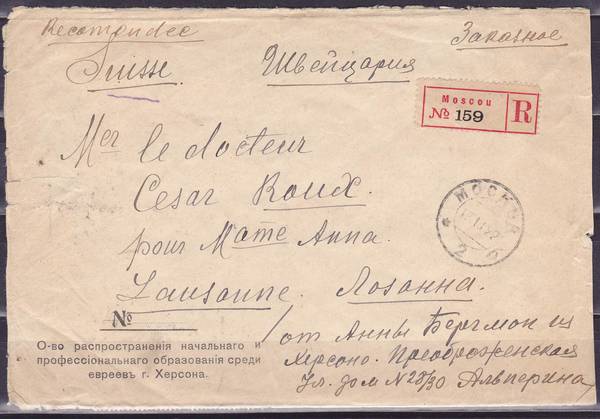 Recomandee
Заказное
Suisse
Швейцария
Moscou
№ 159
R
Mer le docteur
Cesar Roux.
МОСКВА
pour Mame Anna.
Lausanne. Лозанна.
№
О-во распространенія начальнаго и
профессіональнаго образованія среди
евреевъ г. Херсона.
от Анны Бергмон из
Херсона. Преображенская
Ул. дом N 28/30 Альперина